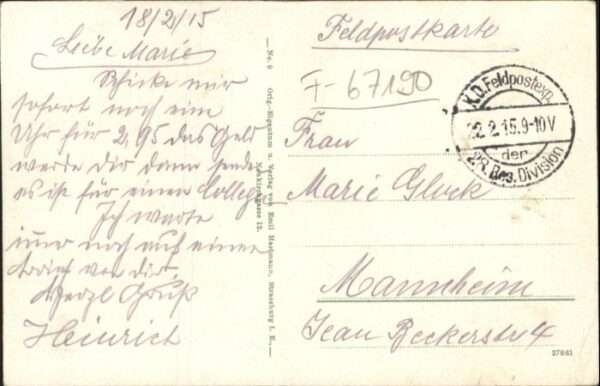 18/2/15
Leibe Marie
Schicke mir
sofort noch ein
Uhr für 2,95 das Geld
werde dir dann senden
es ist für einen Colleg
Ich warte
imer noch auf einen
von dir
Herzl Gruß
Heinrich
No. 9 Orig.-Eigentum u. Verlag von Emil Hartmann, Strassburg i. E.,
12.
Feldpostkarte
F-67190
K.D. Feldpostexp.
22.2.15.9-10V
der
28. Res. Division
Frau
Marie Gluck
Mannheim
Jean Beckerstr 4
37641